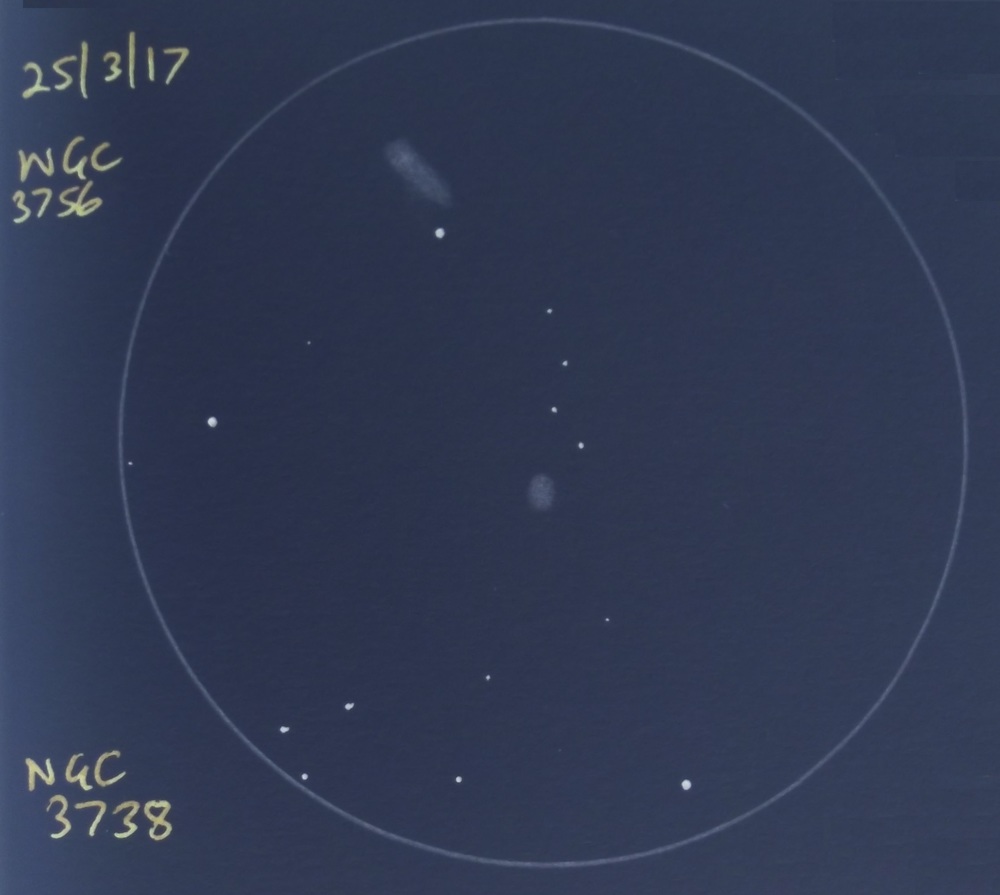 25/3/17
NGC
3756
NGC
3738